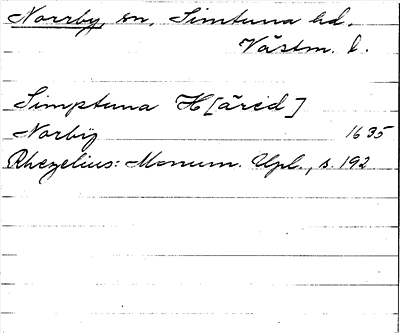 Norrby, sn, Simtuna hd.
Västm. l.
Simptuna H[ärid]
Norbÿ 1635
Rhezelius: Monum. Upl., s. 192